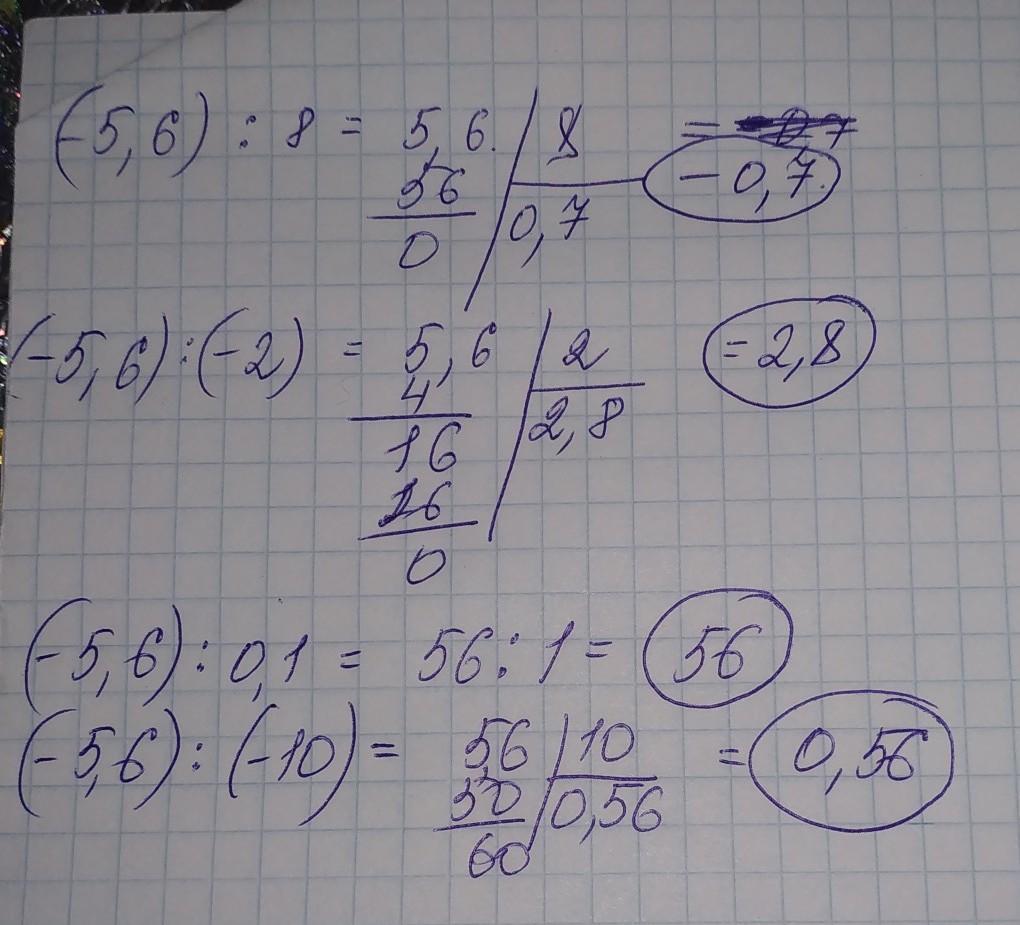 (-5,6) : 8 = 5,6. 8 = -0,7
56 -0,7.
0 0,7
(-5,6):(-2) = 5,6 2 =2,8
4 2,8
16
16
0
(-5,6): 0,1 = 56:1= 56
(-5,6): (-10) = 5,6 10 = 0,56
50 0,56
60